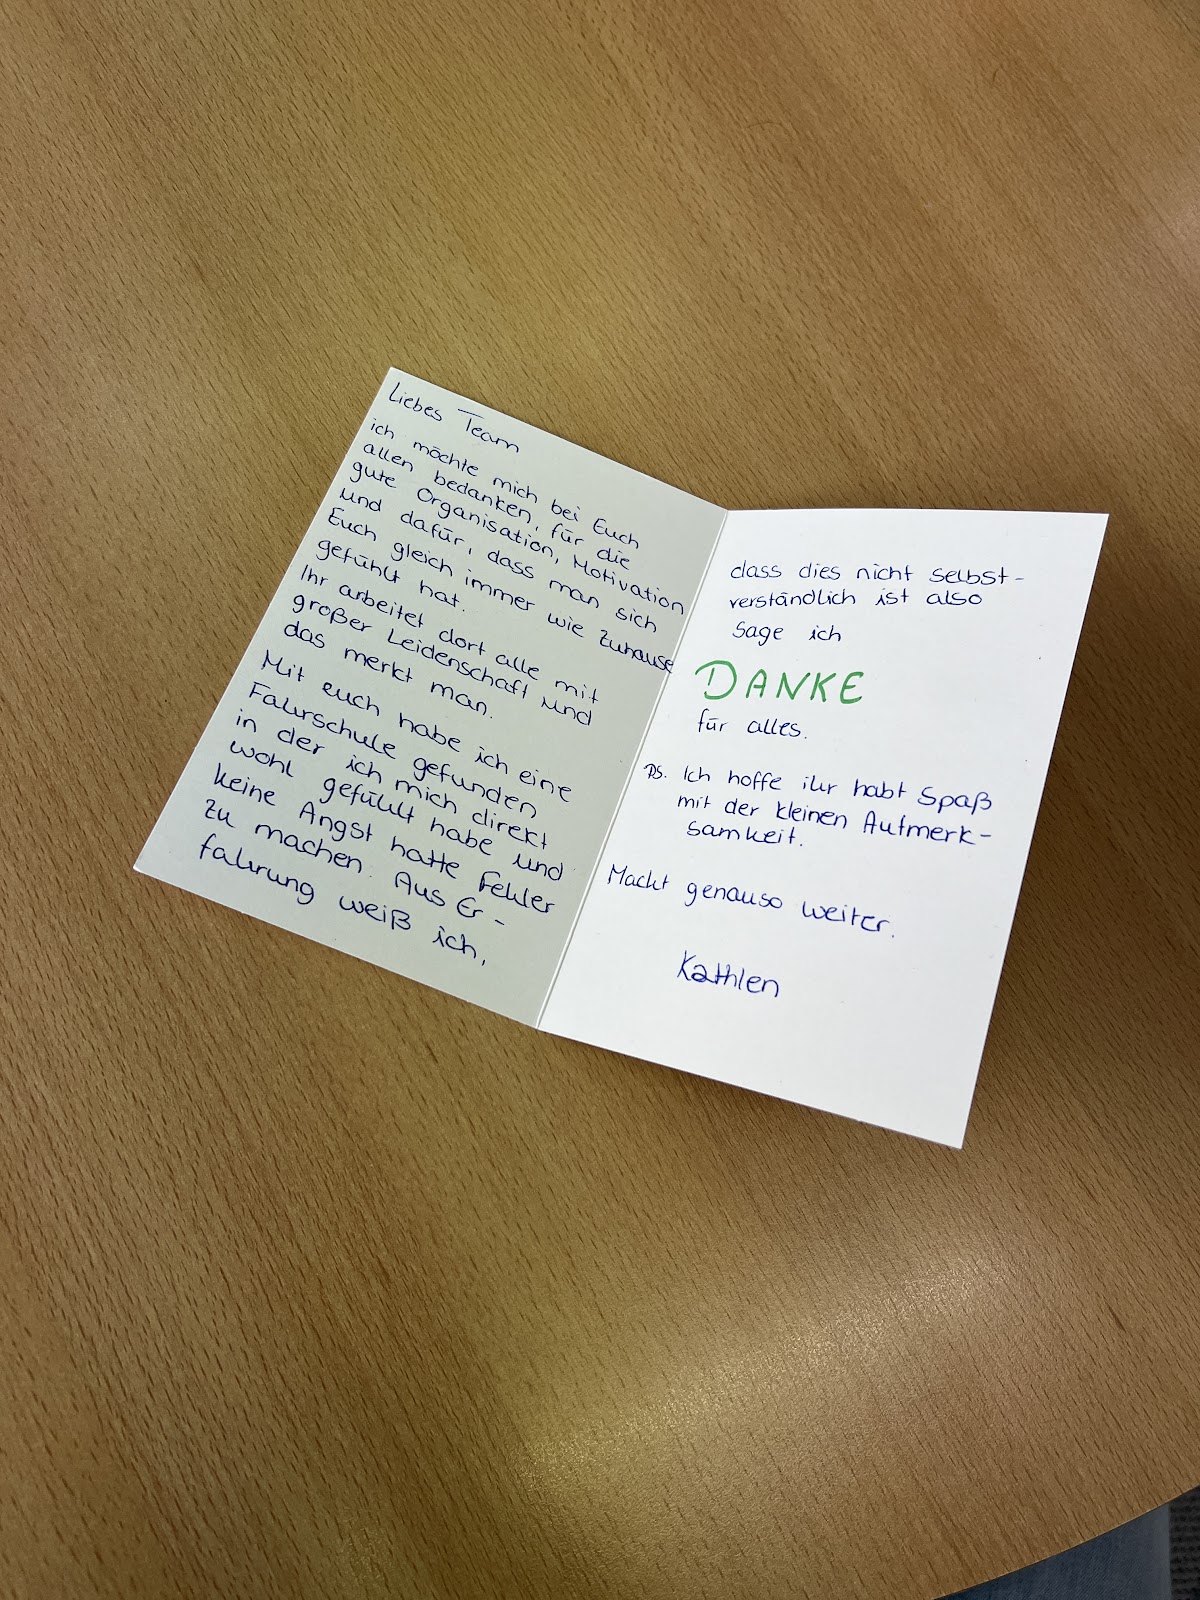 Liebes Team
ich möchte mich bei Euch
allen bedanken, für die
gute Organisation, Motivation
und dafür, dass man sich
Euch gleich immer wie Zuhause
gefühlt hat.
Ihr arbeitet dort alle mit
großer Leidenschaft und
das merkt man.
Mit euch habe ich eine
Fahrschule gefunden
in der ich mich direkt
wohl gefühlt habe und
keine Angst hatte Fehler
zu machen. Aus Er-
fahrung weiß ich,
dass dies nicht selbst-
verständlich ist also
sage ich
DANKE
für alles.
PS. Ich hoffe ihr habt Spaß
mit der kleinen Aufmerk-
samkeit.
Macht genauso weiter.
Kathlen